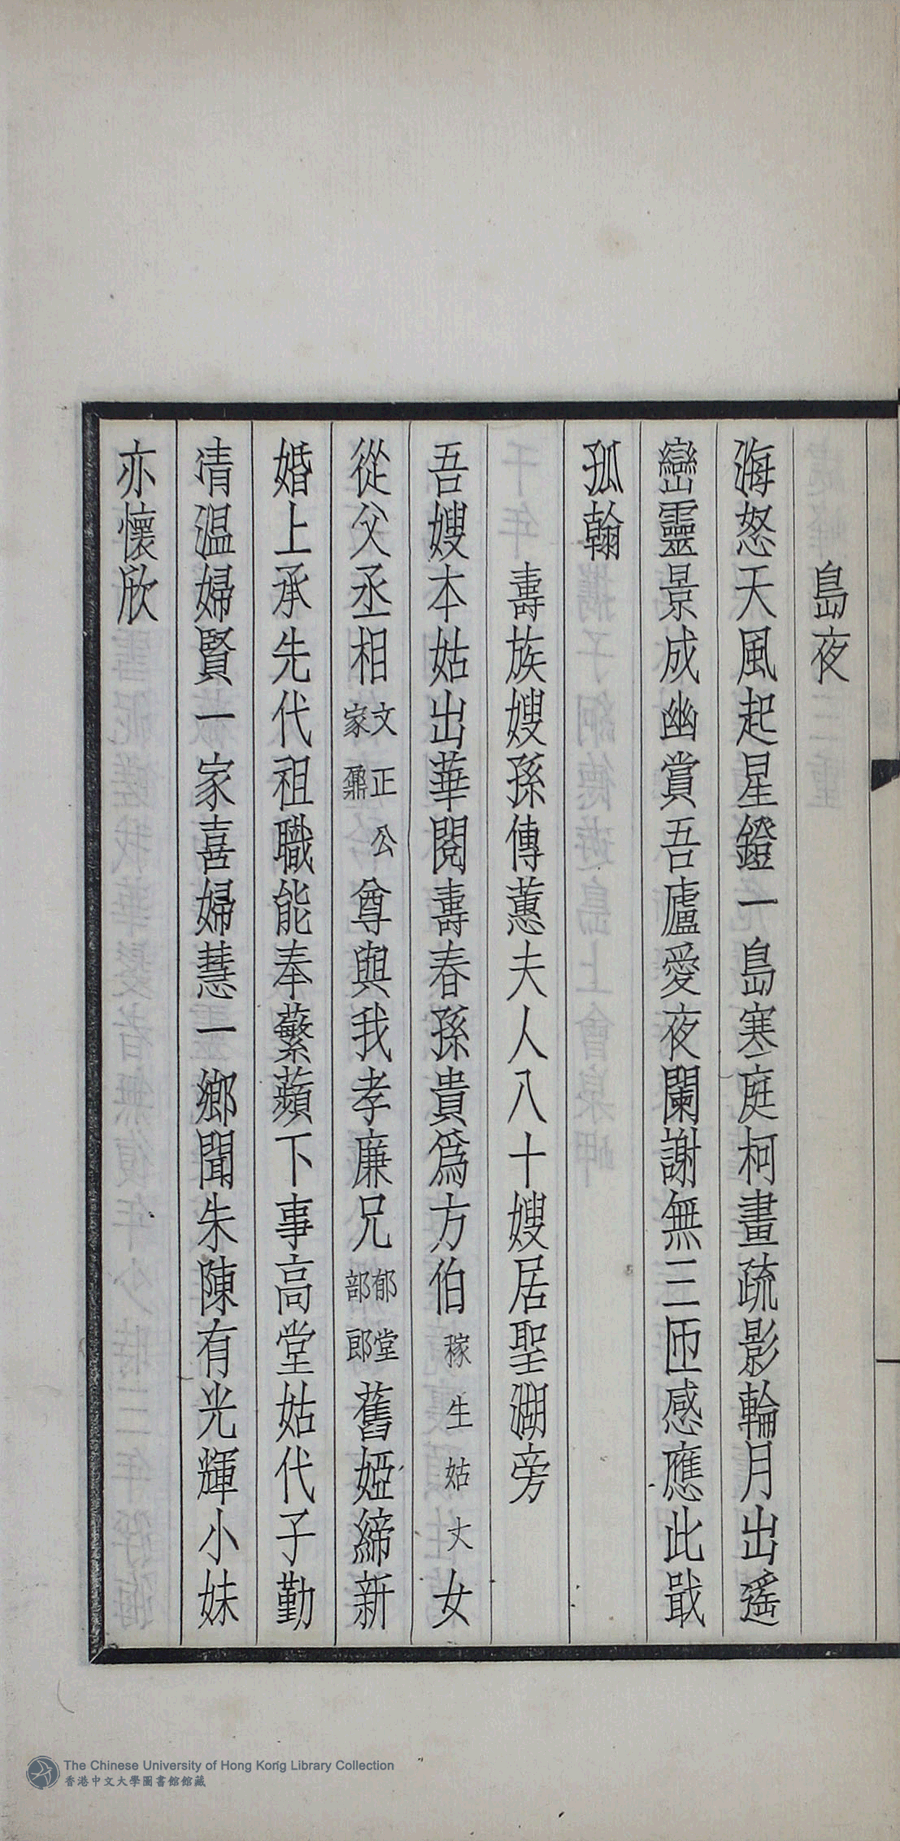 島夜
海怒天風起星鐙一島寒庭柯畫疏影輪月出遙
巒靈景成幽賞吾廬愛夜闌謝無三匝感應此戢
孤翰
壽族嫂孫傳蕙夫人八十嫂居聖湖旁
吾嫂本姑出華閥壽春孫貴為方伯稼生姑丈女
從父丞相文正公家鼐尊與我孝廉兄郁堂部郎舊婭締新
婚上承先代祖職能奉蘩蘋下事高堂姑代子勤
凊温婦賢一家喜婦慧一鄉聞朱陳有光輝小妹
亦懷欣
The Chinese University of Hong Kong Library Collection
香港中文大學圖書館館藏